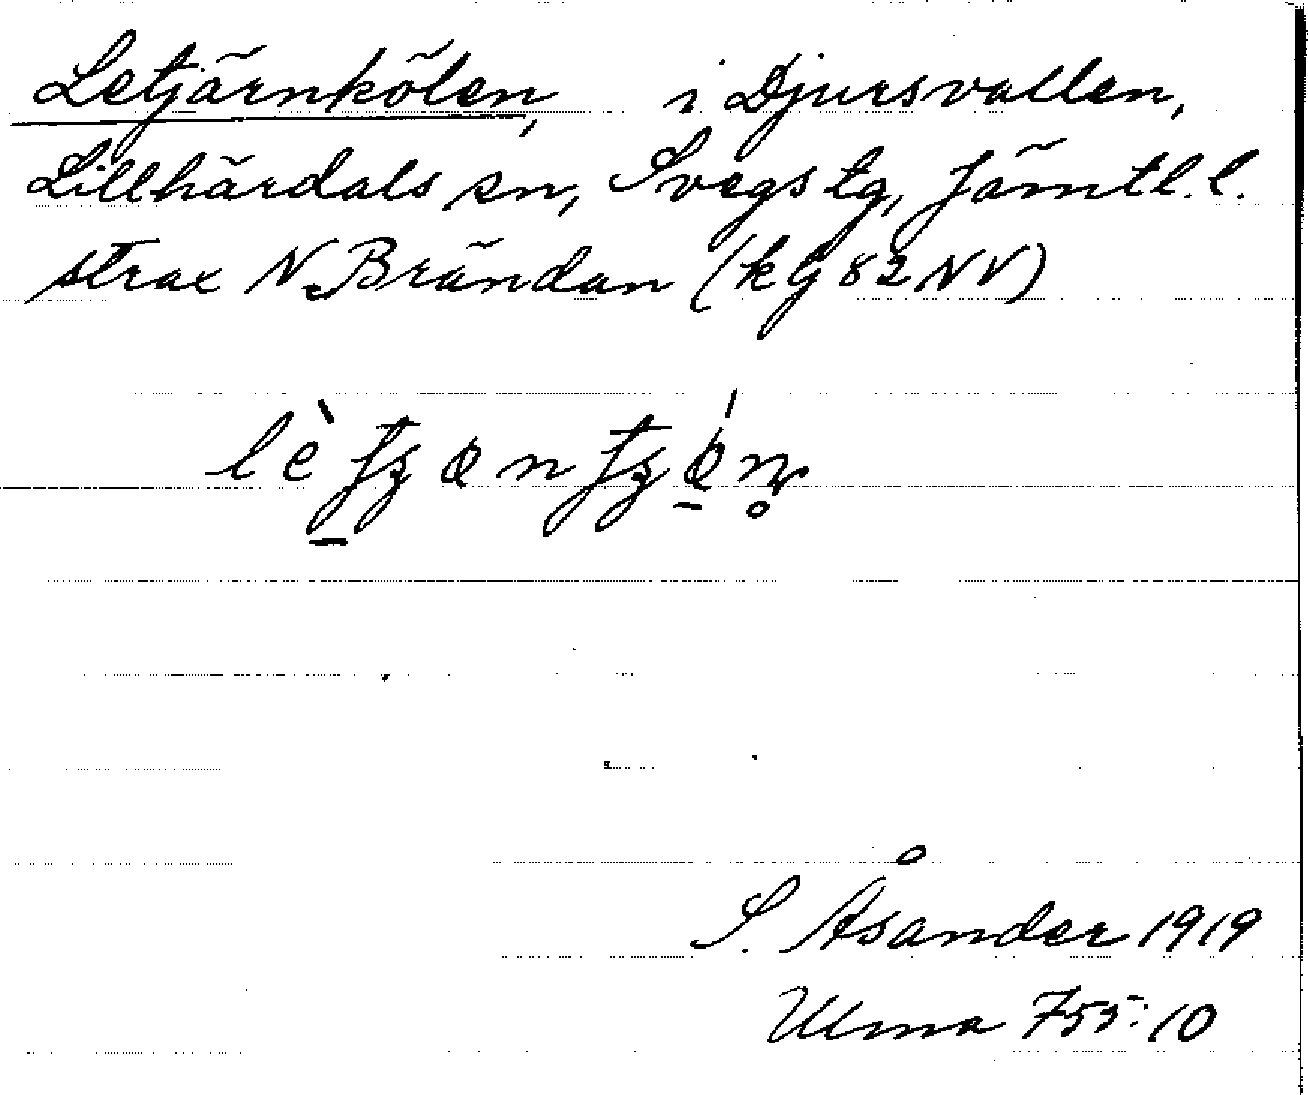 Letjärnkölen, i Djursvallen,
Lillhärdals sn, Svegs tg, Jämtl. l.
strax N. Brändan (kg 82 NV)
S. Åsander 1919
Ulma 755:10